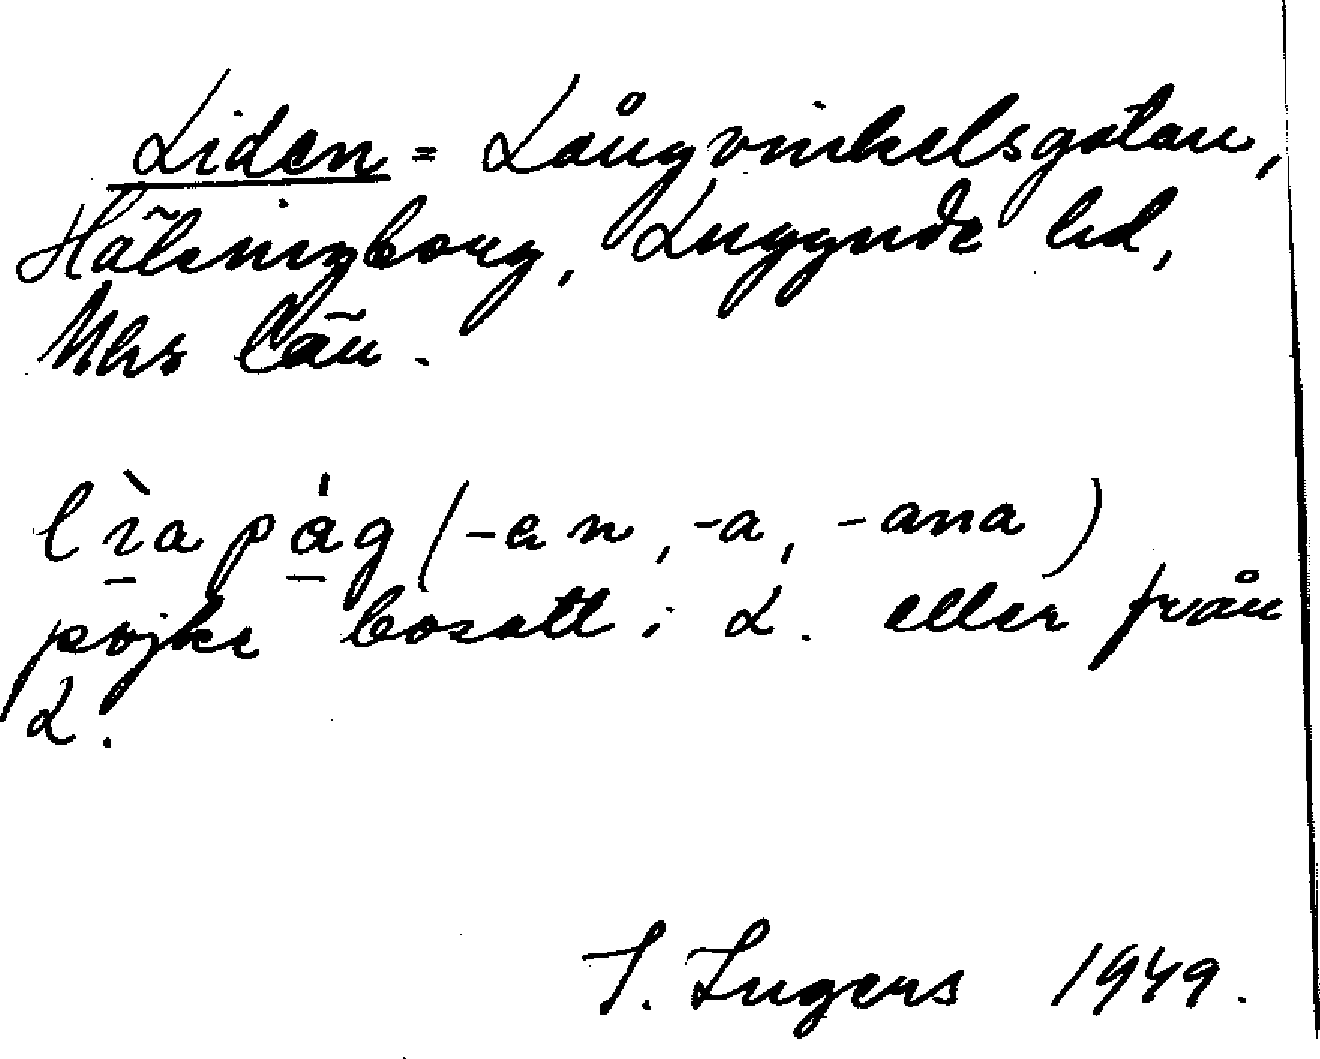 Liden = Långvinkelsgatan,
Hälsingborg, Luggude hd,
Mhs län.
lìapág (-en, -a, -ana)
pojke bosatt i L. eller från
L.
I. Ingers 1949.